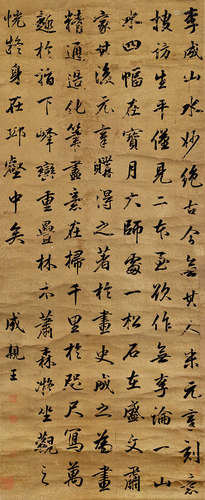 李成山水妙絕古今無其人米元章刻意
搜訪生平僅見二本至欲作無李論一山
水四幅在寶月大師處一松石在盛文肅
家其後元章購得之著於畫史成之為畫
精通造化筆盡意在掃千里於咫尺寫萬
趣於指下峰巒重疊林木蕭森凝坐觀之
恍然身在邱壑中矣
成親王